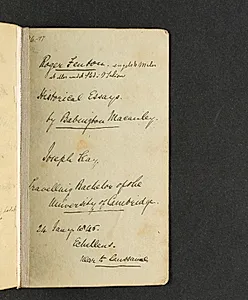 Roger Fenton.
Historical Essays.
by Babington Macaulay.
Joseph Kay.
Travelling Bachelor of the
University of Cambridge.
24 Jany 1845.
Echallens.
near to Lausanne